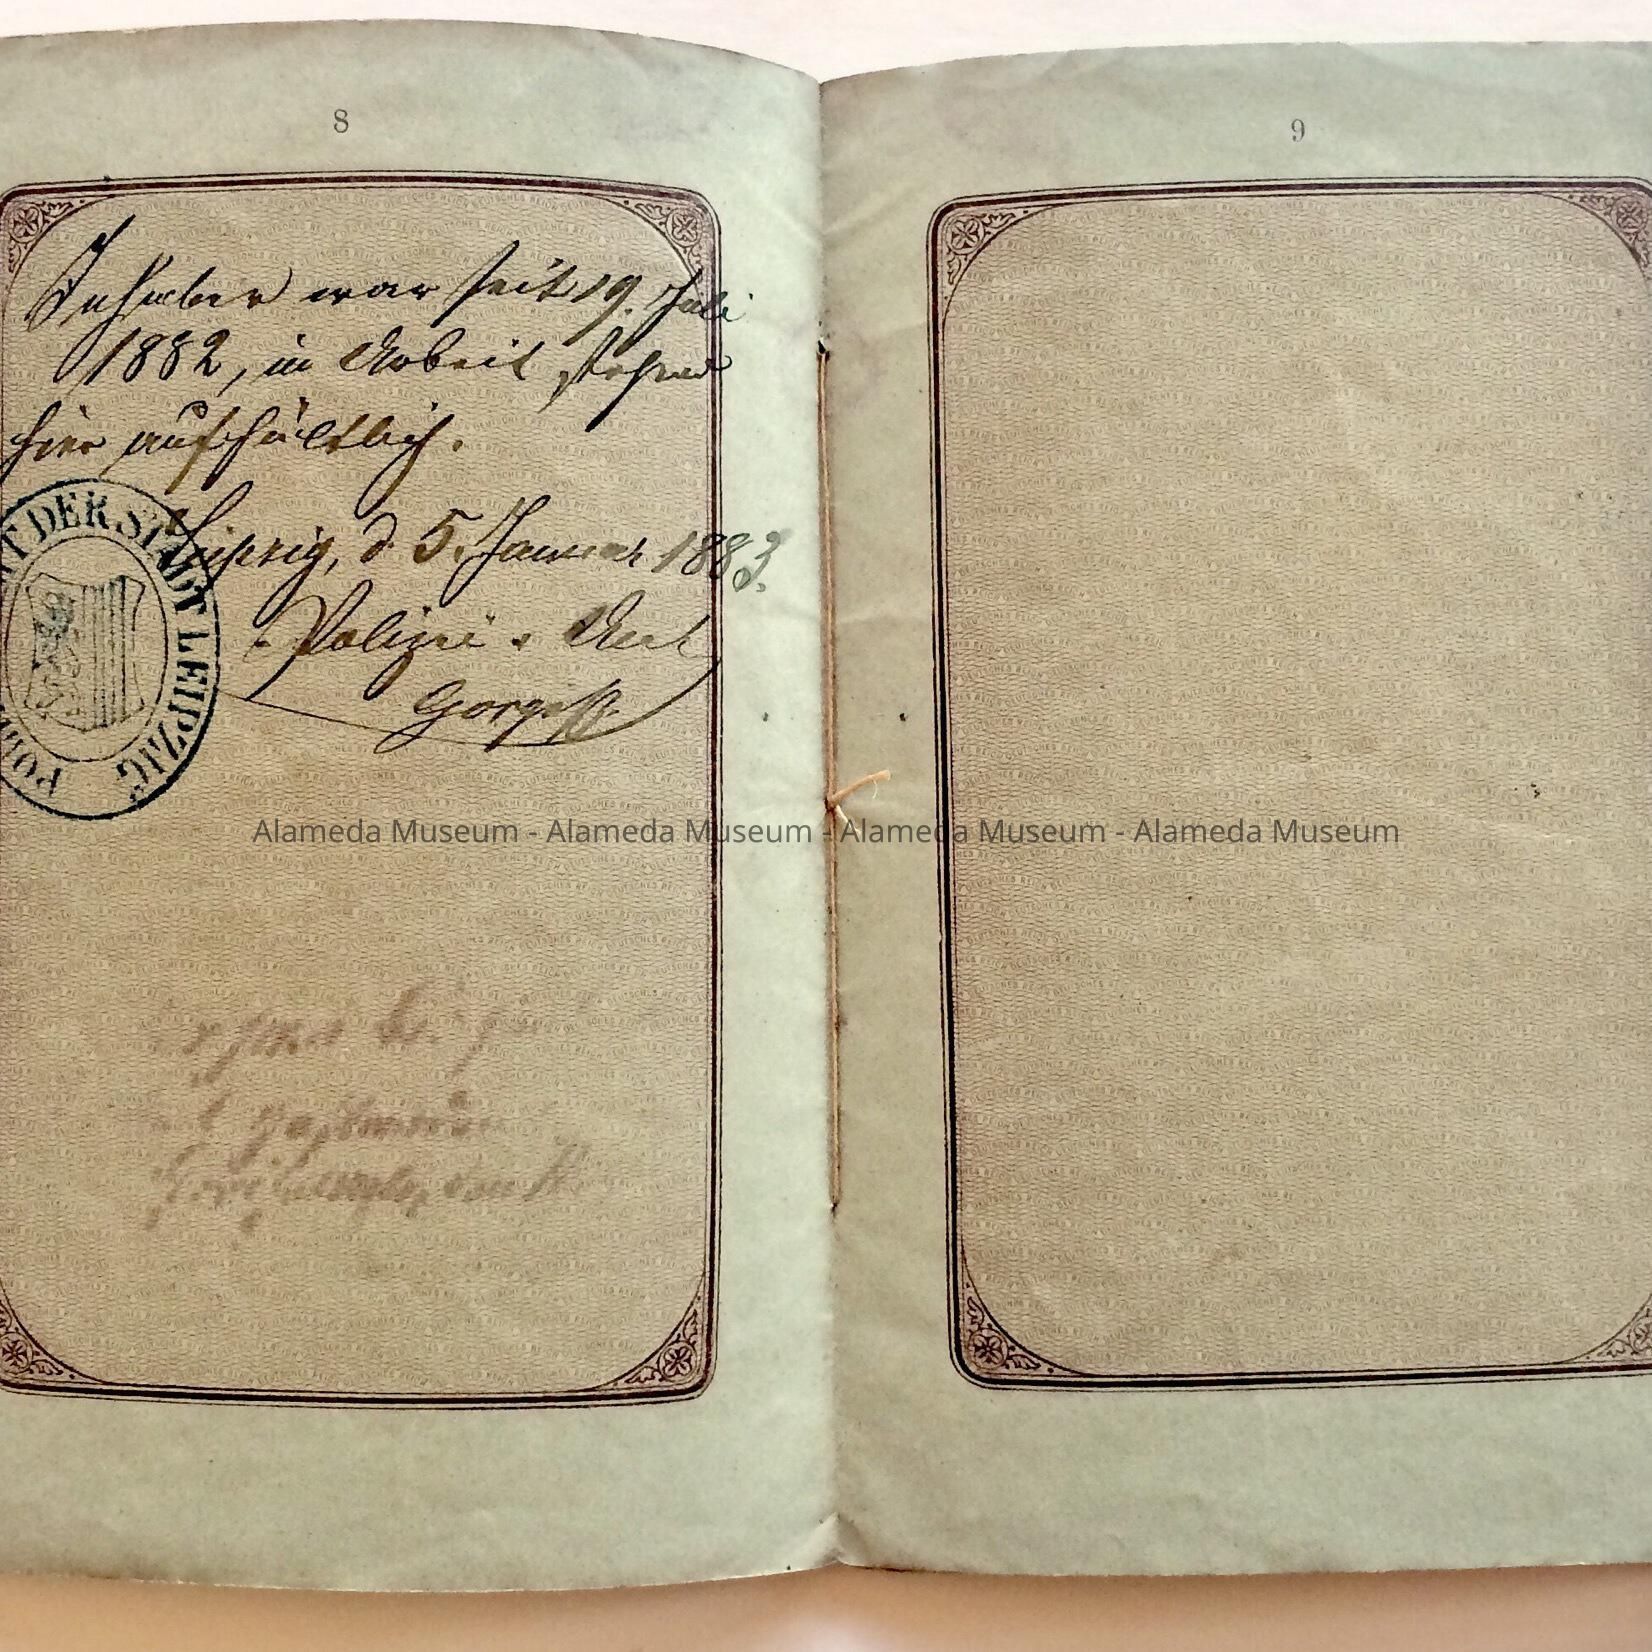 8
Inhaber war seit 19. Juli
1882, in Arbeit stehend
hier aufhältlich.
Leipzig, d. 5. Januar 1883.
Polizei-Amt
DER STADT LEIPZIG
9
Alameda Museum - Alameda Museum - Alameda Museum - Alameda Museum
DEUTSCHES REICH